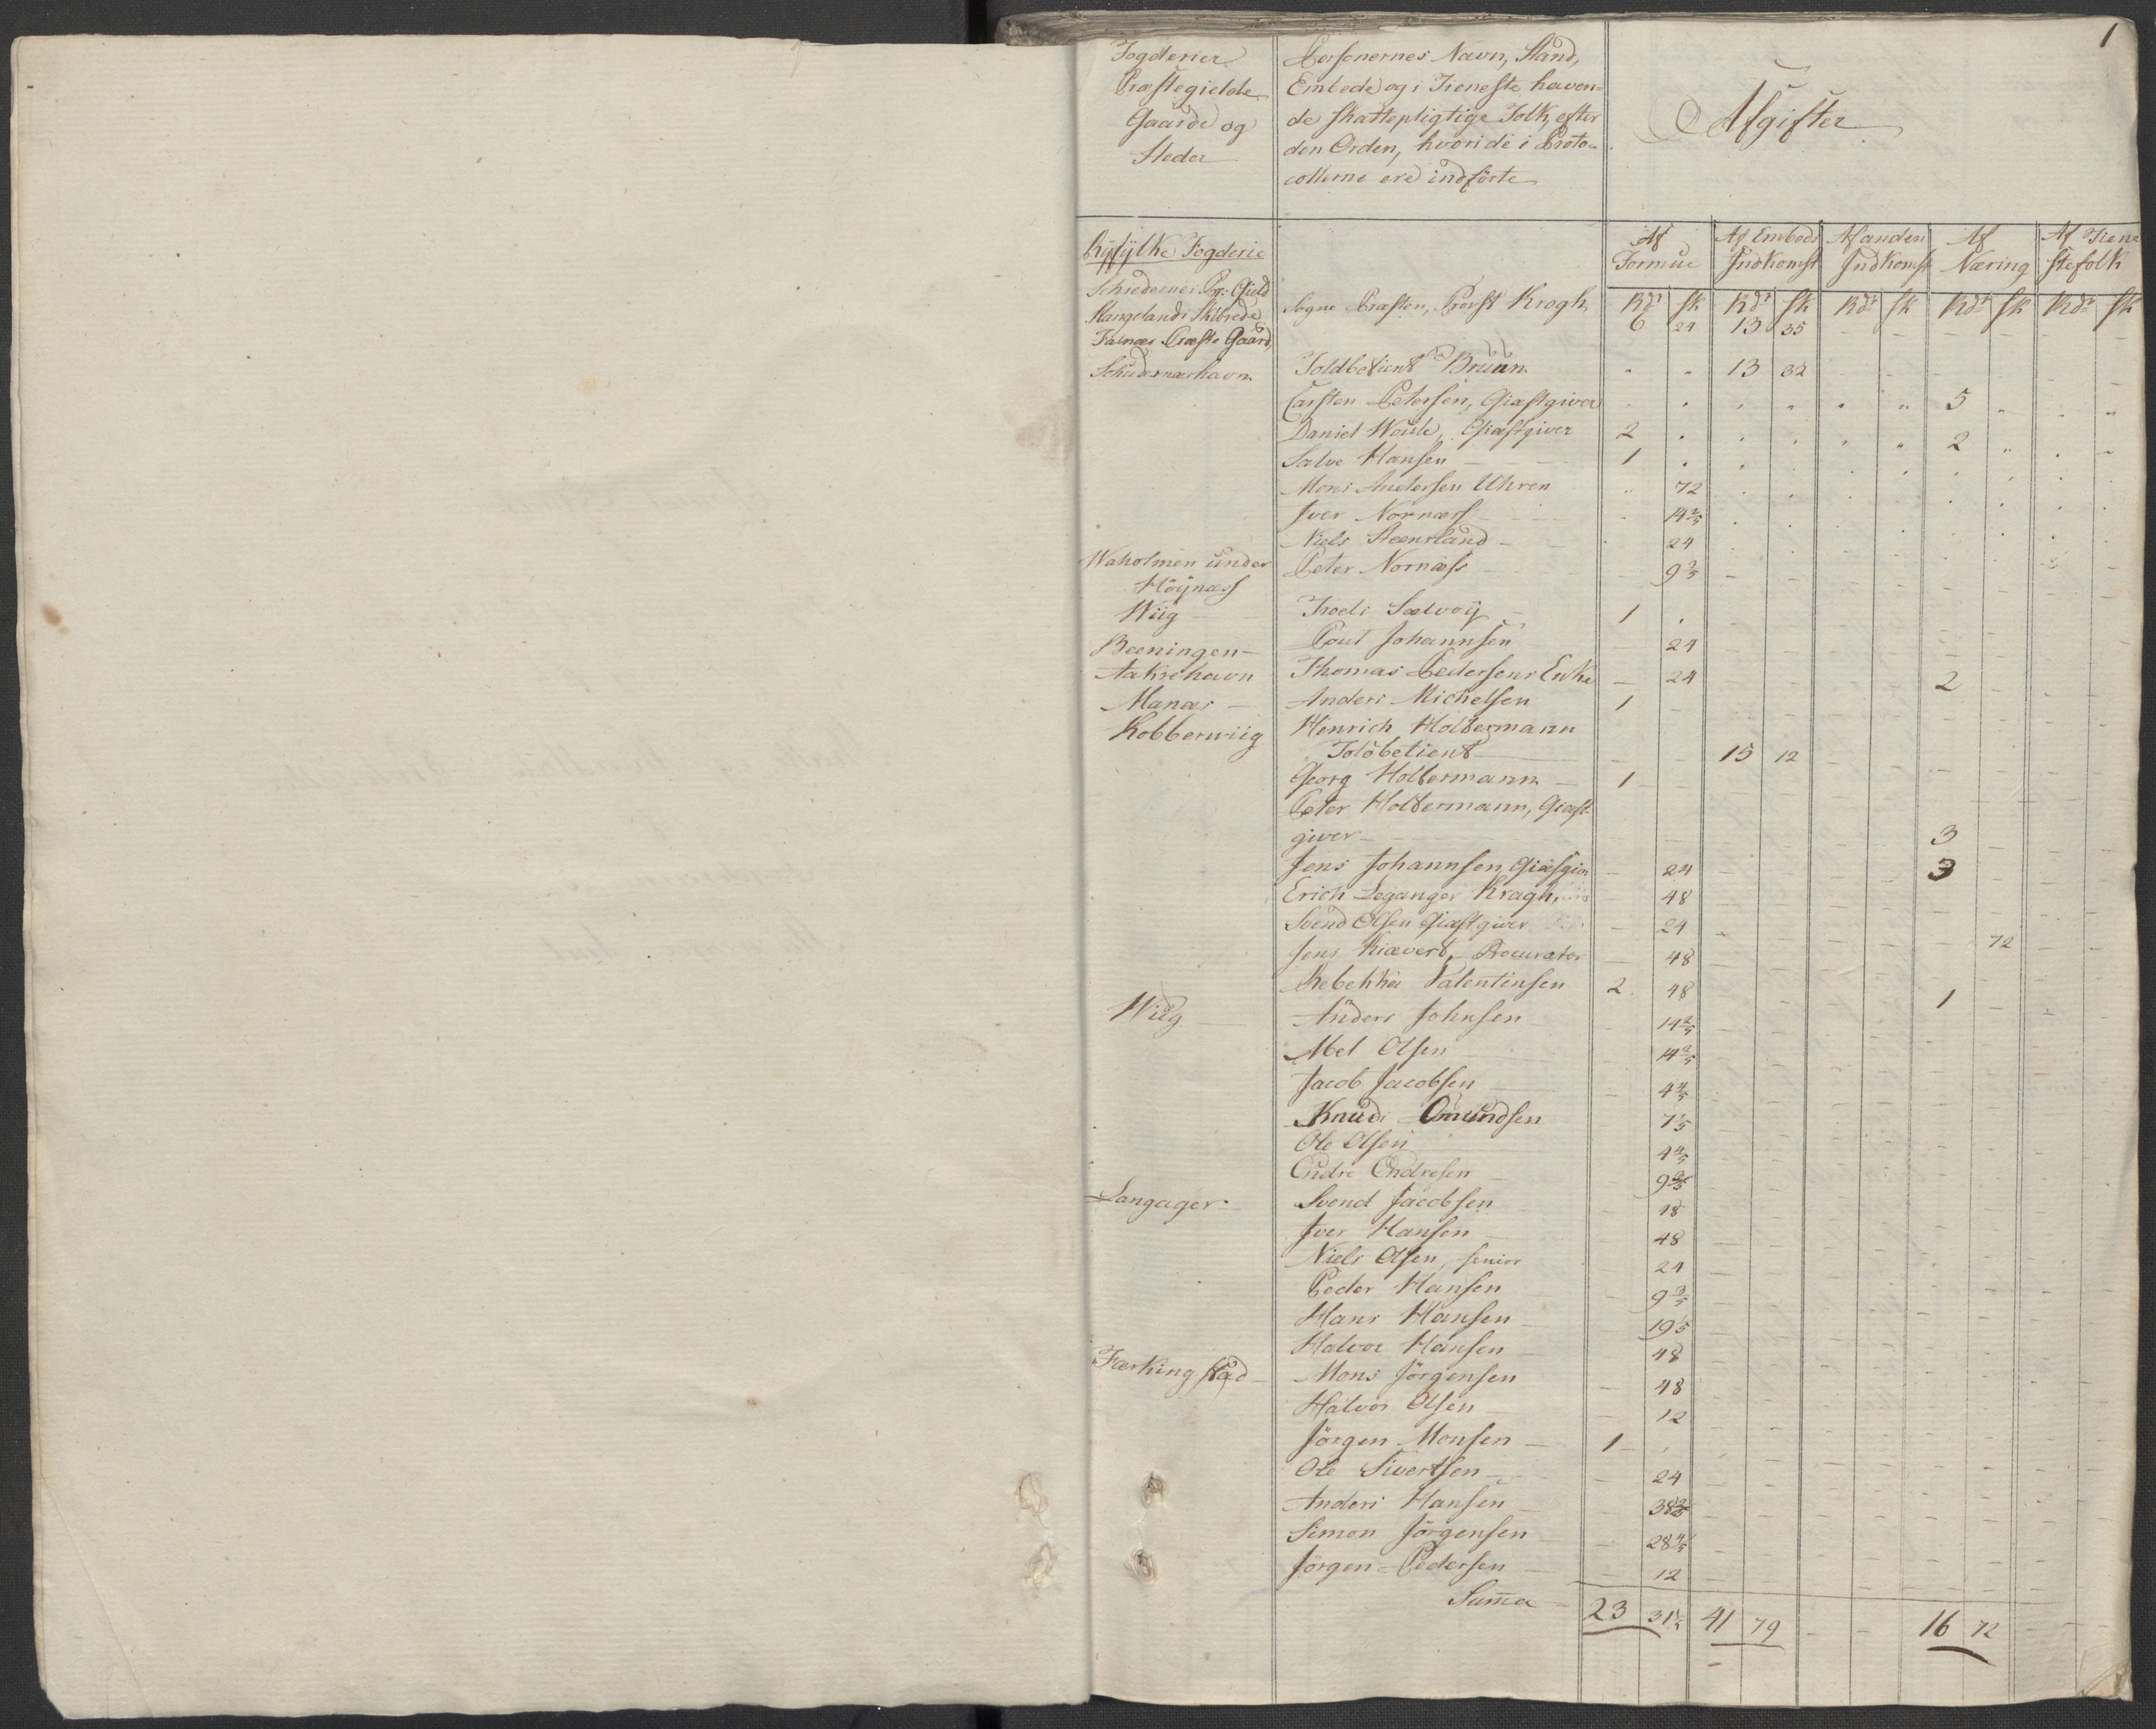 1
Fogderier
Præstegielde
Gaarde og
Steder
Personernes Navn, Stand,
Embede og i Tieneste haven=
de skattepligtige Folk, efter
den Orden, hvori de i Proto=
collerne ere indførte
Afgifter
Af Formue | Af Embeds Indkomst | Af anden Indkomst | Af Næring | Af Tiene stefolk
Rdr sk | Rdr sk | Rdr sk | Rdr sk | Rdr sk
Ryfylke Fogderie
Schudesnes Pr: Gield
Stangelands Skibrede
Falnæs Præste Gaard | Sogne Præsten, Provst Krogh | 6 24 | 13 35
Schudesnæshavn | Toldbetient Bruun | " " | 13 32
Carsten Petersen, Giæstgiver | 5
Daniel Woule, Giæstgiver | 2 | 2
Salve Hansen | 1
Mons Andersen Uhren | 72
Iver Nornæss | 14 2/5
Niels Steensland | 24
Waholmen under Høÿnæss | Peter Nornæss | 9 3/5
Wiig | Troels Sælvoÿ | 1
Beeningen | Poul Johannsen | 24
Aakrehavn | Thomas Pedersens Enke | 24 | 2
Manæs | Anders Michelsen | 1
Kobberwiig | Henrich Holtermann
Toldbetient | 15 12
Georg Holtermann | 1
Peter Holtermann, Giæst-
giver | 3
Jens Johannsen, Giæsgiv | 24 | 3
Erich Leganger Kragh | 48
Svend Olsen Giæstgiver | 24
Jens Kiæverd, Procurator | 48 | 72
Rebekka Valentinsen | 2 48
Wiig | Anders Johnsen | 14 2/5 | 1
Abel Olsen | 14 2/5
Jacob Jacobsen | 4 4/5
Knud Omundsen | 7 1/5
Ole Olsen | 4 4/5
Endre Endresen | 9 3/5
Langager | Svend Jacobsen | 18
Iver Hansen | 48
Niels Olsen, senior | 24
Peder Hansen | 9 3/5
Hans Hansen | 19 1/5
Halvor Hansen | 48
Færkingstad | Mons Jörgensen | 48
Halvor Olsen | 12
Jörgen Monsen | 1
Ole Sivertsen | 24
Anders Hansen | 38 2/5
Simon Jörgensen | 28 4/5
Jörgen Pedersen | 12
Summa | 23 31 1/5 | 41 79 | 16 72